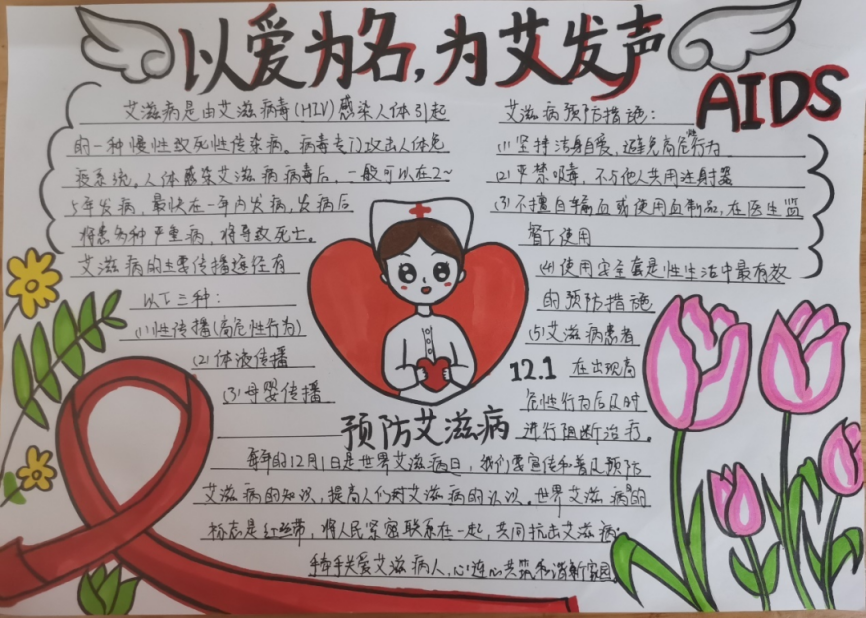 以爱为名，为艾发声
AIDS
艾滋病是由艾滋病毒(HIV)感染人体引起
的一种慢性致死性传染病。病毒专门攻击人体免
疫系统。人体感染艾滋病病毒后，一般可以在2~
5年发病，最快在一年内发病，发病后
将患各种严重病，将导致死亡。
艾滋病的主要传播途径有
以下三种：
(1)性传播(高危性行为)
(2)体液传播
(3)母婴传播
艾滋病预防措施：
(1)坚持洁身自爱，避免高危性行为
(2)严禁吸毒，不与他人共用注射器
(3)不擅自输血或使用血制品，在医生监
督下使用
(4)使用安全套是性生活中最有效
的预防措施
(5)艾滋病患者
在出现高
危性行为后及时
进行阻断治疗。
12.1
预防艾滋病
每年的12月1日是世界艾滋病日，我们要宣传和普及预防
艾滋病的知识，提高人们对艾滋病的认识。世界艾滋病的
标志是红丝带，将人民紧密联系在一起，共同抗击艾滋病。
手牵手关爱艾滋病人，心连心共筑和谐新家园。